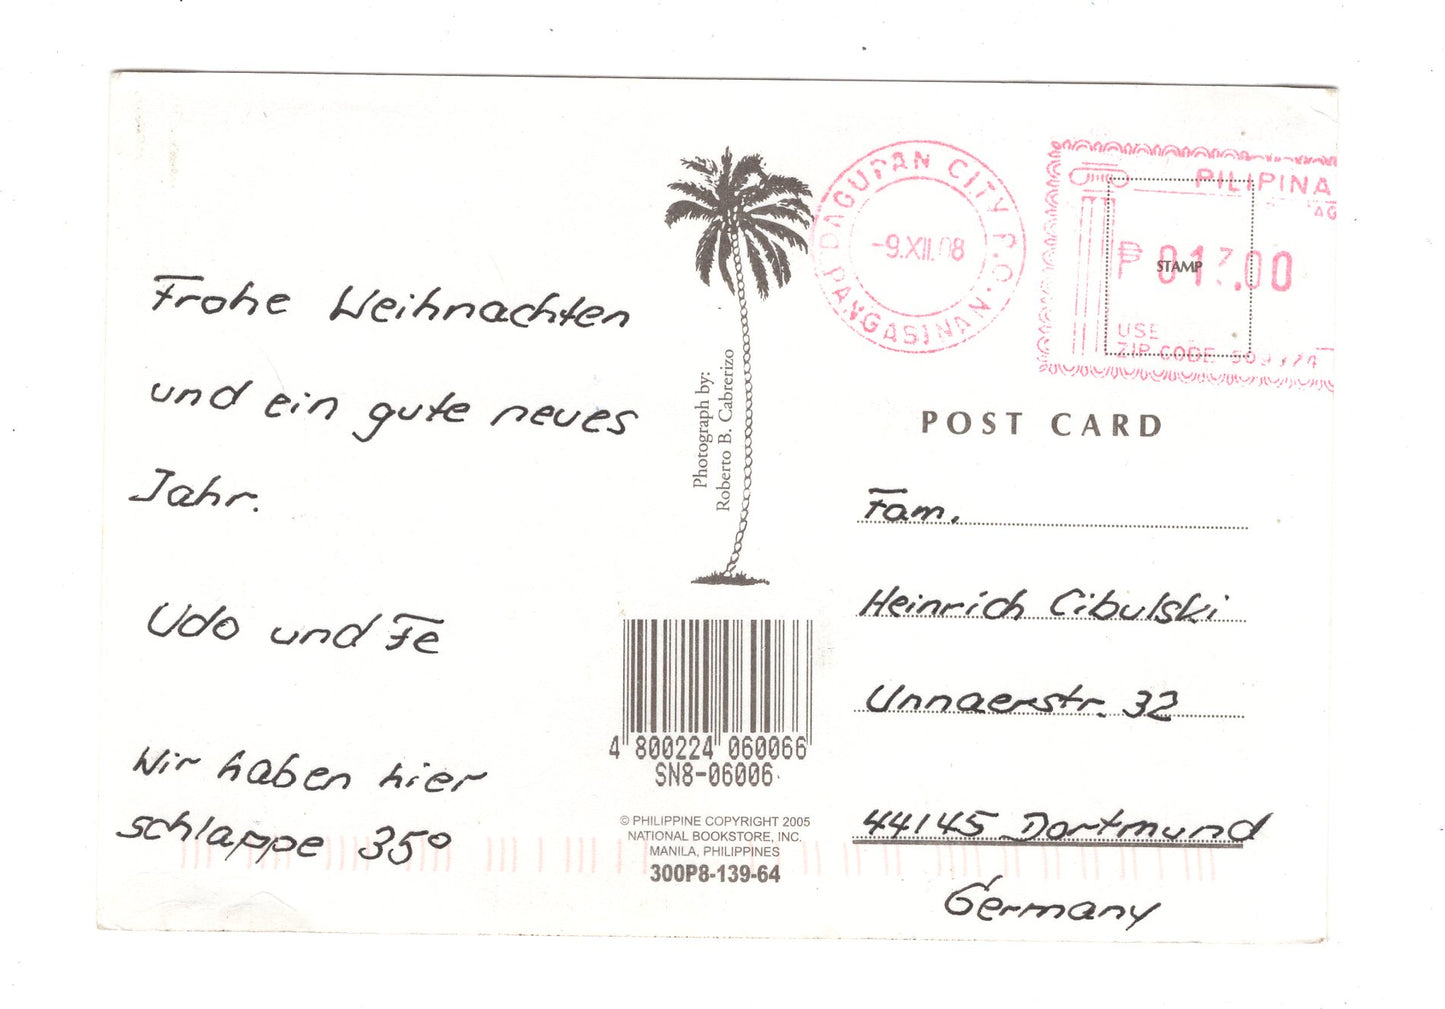 Frohe Weihnachten
und ein gute neues
Jahr.
Udo und Fe
Wir haben hier
schlappe 35°
Photograph by:
Roberto B. Cabrerizo
4 800224 060066
SN8-06006
© PHILIPPINE COPYRIGHT 2005
NATIONAL BOOKSTORE, INC.
MANILA, PHILIPPINES
300P8-139-64
DAGUPAN CITY P.O.
-9.XII.08
PANGASINAN
PILIPINA
₱ 013.00
STAMP
USE
ZIP CODE
POST CARD
Fam.
Heinrich Cibulski
Unnaerstr. 32
44145 Dortmund
Germany